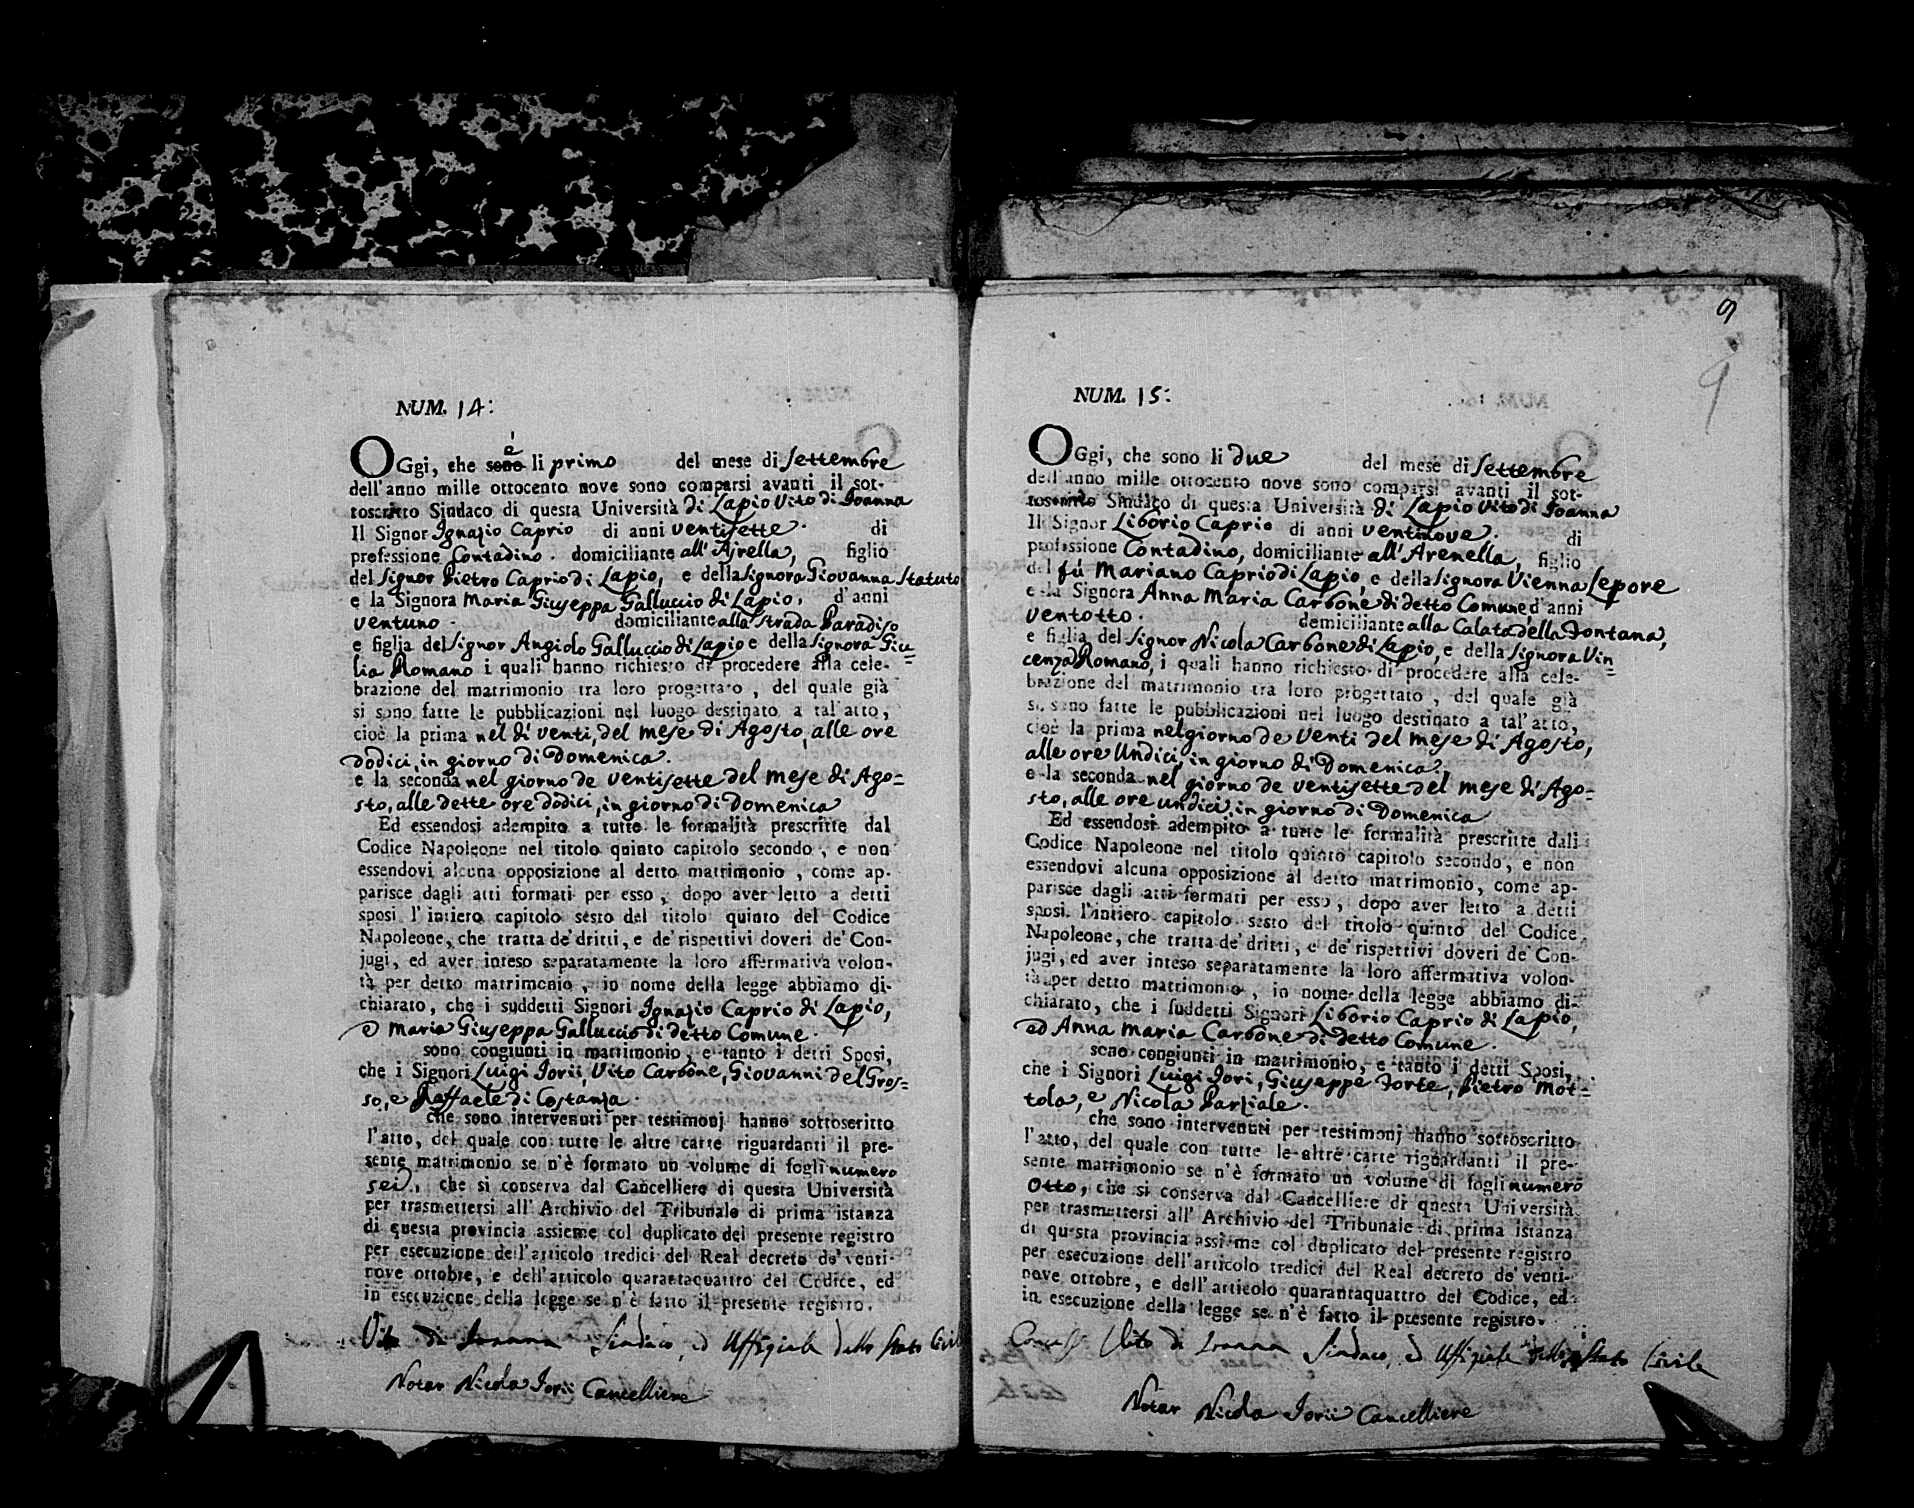 NUM. 14:
è
OGgi, che sono li primo del mese di Settembre
dell'anno mille ottocento nove sono comparsi avanti il sot-
toscritto Sindaco di questa Università di Lapio Vito di Joanna
Il Signor Ignazio Caprio di anni ventisette. di
professione Contadino. domiciliante all'Ajrella, figlio
del Signor Pietro Caprio di Lapio, e della Signora Giovanna Statuto
e la Signora Maria Giuseppa Galluccio di Lapio, d'anni
ventuno. domiciliante alla Strada Paradiso
e figlia del Signor Angiolo Galluccio di Lapio e della Signora Giu=
lia Romano i quali hanno richiesto di procedere alla cele-
brazione del matrimonio tra loro progettato, del quale già
si sono fatte le pubblicazioni nel luogo destinato a tal'atto,
cioè la prima nel dì venti, del mese di Agosto, alle ore
dodici, in giorno di Domenica.
e la seconda nel giorno de ventisette del mese di Ago=
sto, alle dette ore dodici, in giorno di Domenica
Ed essendosi adempito a tutte le formalità prescritte dal
Codice Napoleone nel titolo quinto capitolo secondo, e non
essendovi alcuna opposizione al detto matrimonio, come ap-
parisce dagli atti formati per esso, dopo aver letto a detti
sposi l'intiero capitolo sesto del titolo quinto del Codice
Napoleone, che tratta de' dritti, e de' rispettivi doveri de' Con-
jugi, ed aver inteso separatamente la loro affermativa volon-
tà per detto matrimonio, in nome della legge abbiamo di-
chiarato, che i suddetti Signori Ignazio Caprio di Lapio,
e Maria Giuseppa Galluccio di detto Comune.
sono congiunti in matrimonio, e tanto i detti Sposi,
che i Signori Luigi Jorii, Vito Carbone, Giovanni del Gros=
so, e Raffaele di Costanza.
che sono intervenuti per testimonj hanno sottoscritto
l'atto, del quale con tutte le altre carte riguardanti il pre-
sente matrimonio se n'è formato un volume di fogli numero
sei, che si conserva dal Cancelliere di questa Università
per trasmettersi all' Archivio del Tribunale di prima istanza
di questa provincia assieme col duplicato del presente registro
per esecuzione dell'articolo tredici del Real decreto de' venti-
nove ottobre, e dell'articolo quarantaquattro del Codice, ed
in esecuzione della legge se n'è fatto il presente registro.
Vito di Joanna Sindaco, ed Uffiziale dello Stato Civile
Notar Nicola Jorii Cancelliere
9
9
NUM. 15:
OGgi, che sono li due del mese di Settembre
dell'anno mille ottocento nove sono comparsi avanti il sot-
toscritto Sindaco di questa Università di Lapio Vito di Joanna
Il Signor Liborio Caprio di anni ventinove. di
professione Contadino, domiciliante all'Arenella, figlio
del fù Mariano Caprio di Lapio, e della Signora Vienna Lepore
e la Signora Anna Maria Carbone di detto Comune, d'anni
ventotto. domiciliante alla Calata della Fontana,
e figlia del Signor Nicola Carbone di Lapio, e della Signora Vin=
cenza Romano, i quali hanno richiesto di procedere alla cele-
brazione del matrimonio tra loro progettato, del quale già
si sono fatte le pubblicazioni nel luogo destinato a tal'atto,
cioè la prima nel giorno de venti del mese di Agosto,
alle ore Undici, in giorno di Domenica.
e la seconda nel giorno de ventisette del mese di Ago=
sto, alle ore undici, in giorno di Domenica
Ed essendosi adempito a tutte le formalità prescritte dal
Codice Napoleone nel titolo quinto capitolo secondo, e non
essendovi alcuna opposizione al detto matrimonio, come ap-
parisce dagli atti formati per esso, dopo aver letto a detti
sposi l'intiero capitolo sesto del titolo quinto del Codice
Napoleone, che tratta de' dritti, e de' rispettivi doveri de' Con-
jugi, ed aver inteso separatamente la loro affermativa volon-
tà per detto matrimonio, in nome della legge abbiamo di-
chiarato, che i suddetti Signori Liborio Caprio di Lapio,
ed Anna Maria Carbone di detto Comune.
sono congiunti in matrimonio, e tanto i detti Sposi,
che i Signori Luigi Jori, Giuseppe Forte, Pietro Mot=
tola, e Nicola Parziale.
che sono intervenuti per testimonj hanno sottoscritto
l'atto, del quale con tutte le altre carte riguardanti il pre-
sente matrimonio se n'è formato un volume di fogli numero
Otto, che si conserva dal Cancelliere di questa Università
per trasmettersi all' Archivio del Tribunale di prima istanza
di questa provincia assieme col duplicato del presente registro
per esecuzione dell'articolo tredici del Real decreto de' venti-
nove ottobre, e dell'articolo quarantaquattro del Codice, ed
in esecuzione della legge se n'è fatto il presente registro.
Vito di Joanna Sindaco, ed Uffiziale dello Stato Civile
Notar Nicola Jorii Cancelliere